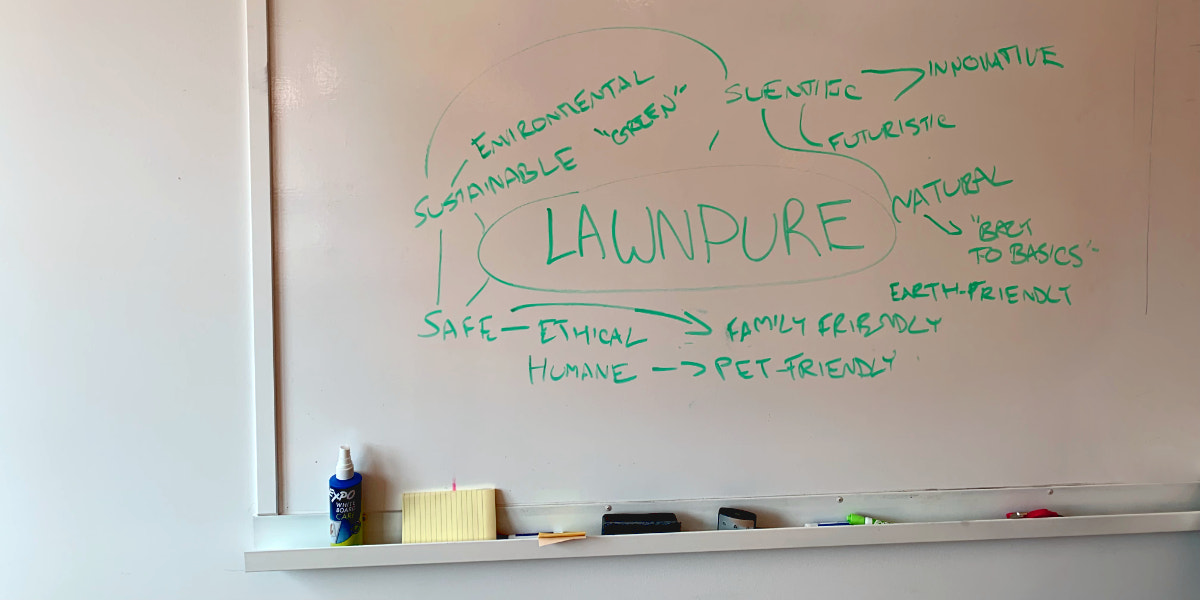 ENVIRONMENTAL
"GREEN"
SUSTAINABLE
SCIENTIFIC
INNOVATIVE
FUTURISTIC
LAWNPURE
NATURAL
"BACK
TO BASICS"
EARTH-FRIENDLY
SAFE - ETHICAL
FAMILY FRIENDLY
HUMANE -> PET-FRIENDLY
EXPO
WHITE
BOARD
CARE